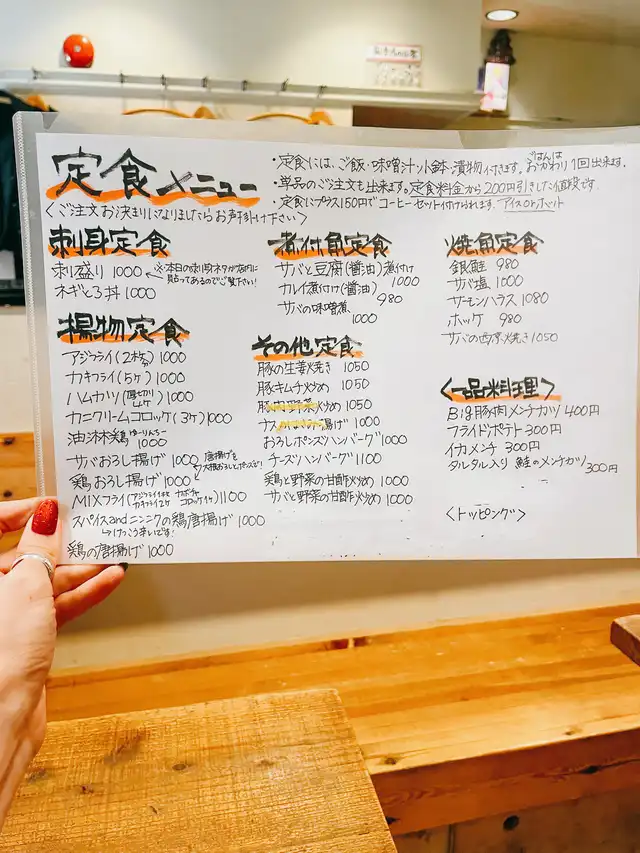 定食メニュー
・定食には、ご飯・味噌汁・小鉢・漬物付きます。ごはんはおかわり1回出来ます。
・単品のご注文も出来ます。定食料金から200円引きした値段です
・定食にプラス150円でコーヒーセット付けられます。アイスorホット
<ご注文お決まりになりましたらお声掛け下さい>
刺身定食
刺盛り 1000
※本日の刺身ネタが店内に
貼ってあるのでご覧下さい!
ネギとろ丼 1000
揚物定食
アジフライ(2枚) 1000
カキフライ(5ヶ) 1000
ハムカツ(厚切り) 1000
カニクリームコロッケ(3ヶ) 1000
油淋鶏 ゆーりんちー
1000
サバおろし揚げ 1000
鶏おろし揚げ 1000
唐揚げを
大根おろしとポン酢で!
MIXフライ 1100
スパイスandニンニクの鶏唐揚げ 1000
→けっこう辛いです!
鶏の唐揚げ 1000
煮付魚定食
サバと豆腐(醤油)煮付け
1000
カレイ煮付け(醤油)
980
サバの味噌煮
1000
その他定食
豚の生姜焼き 1050
豚キムチ炒め 1050
炒め 1050
ナス 揚げ 1000
おろしポンズハンバーグ 1000
チーズハンバーグ 1100
鶏と野菜の甘酢炒め 1000
サバと野菜の甘酢炒め 1000
焼魚定食
銀鮭 980
サバ塩 1000
サーモンハラス 1080
ホッケ 980
サバの西京焼き 1050
<一品料理>
Big豚肉メンチカツ 400円
フライドポテト 300円
イカメンチ 300円
タルタル入り 鮭のメンチカツ 300円
<トッピング>